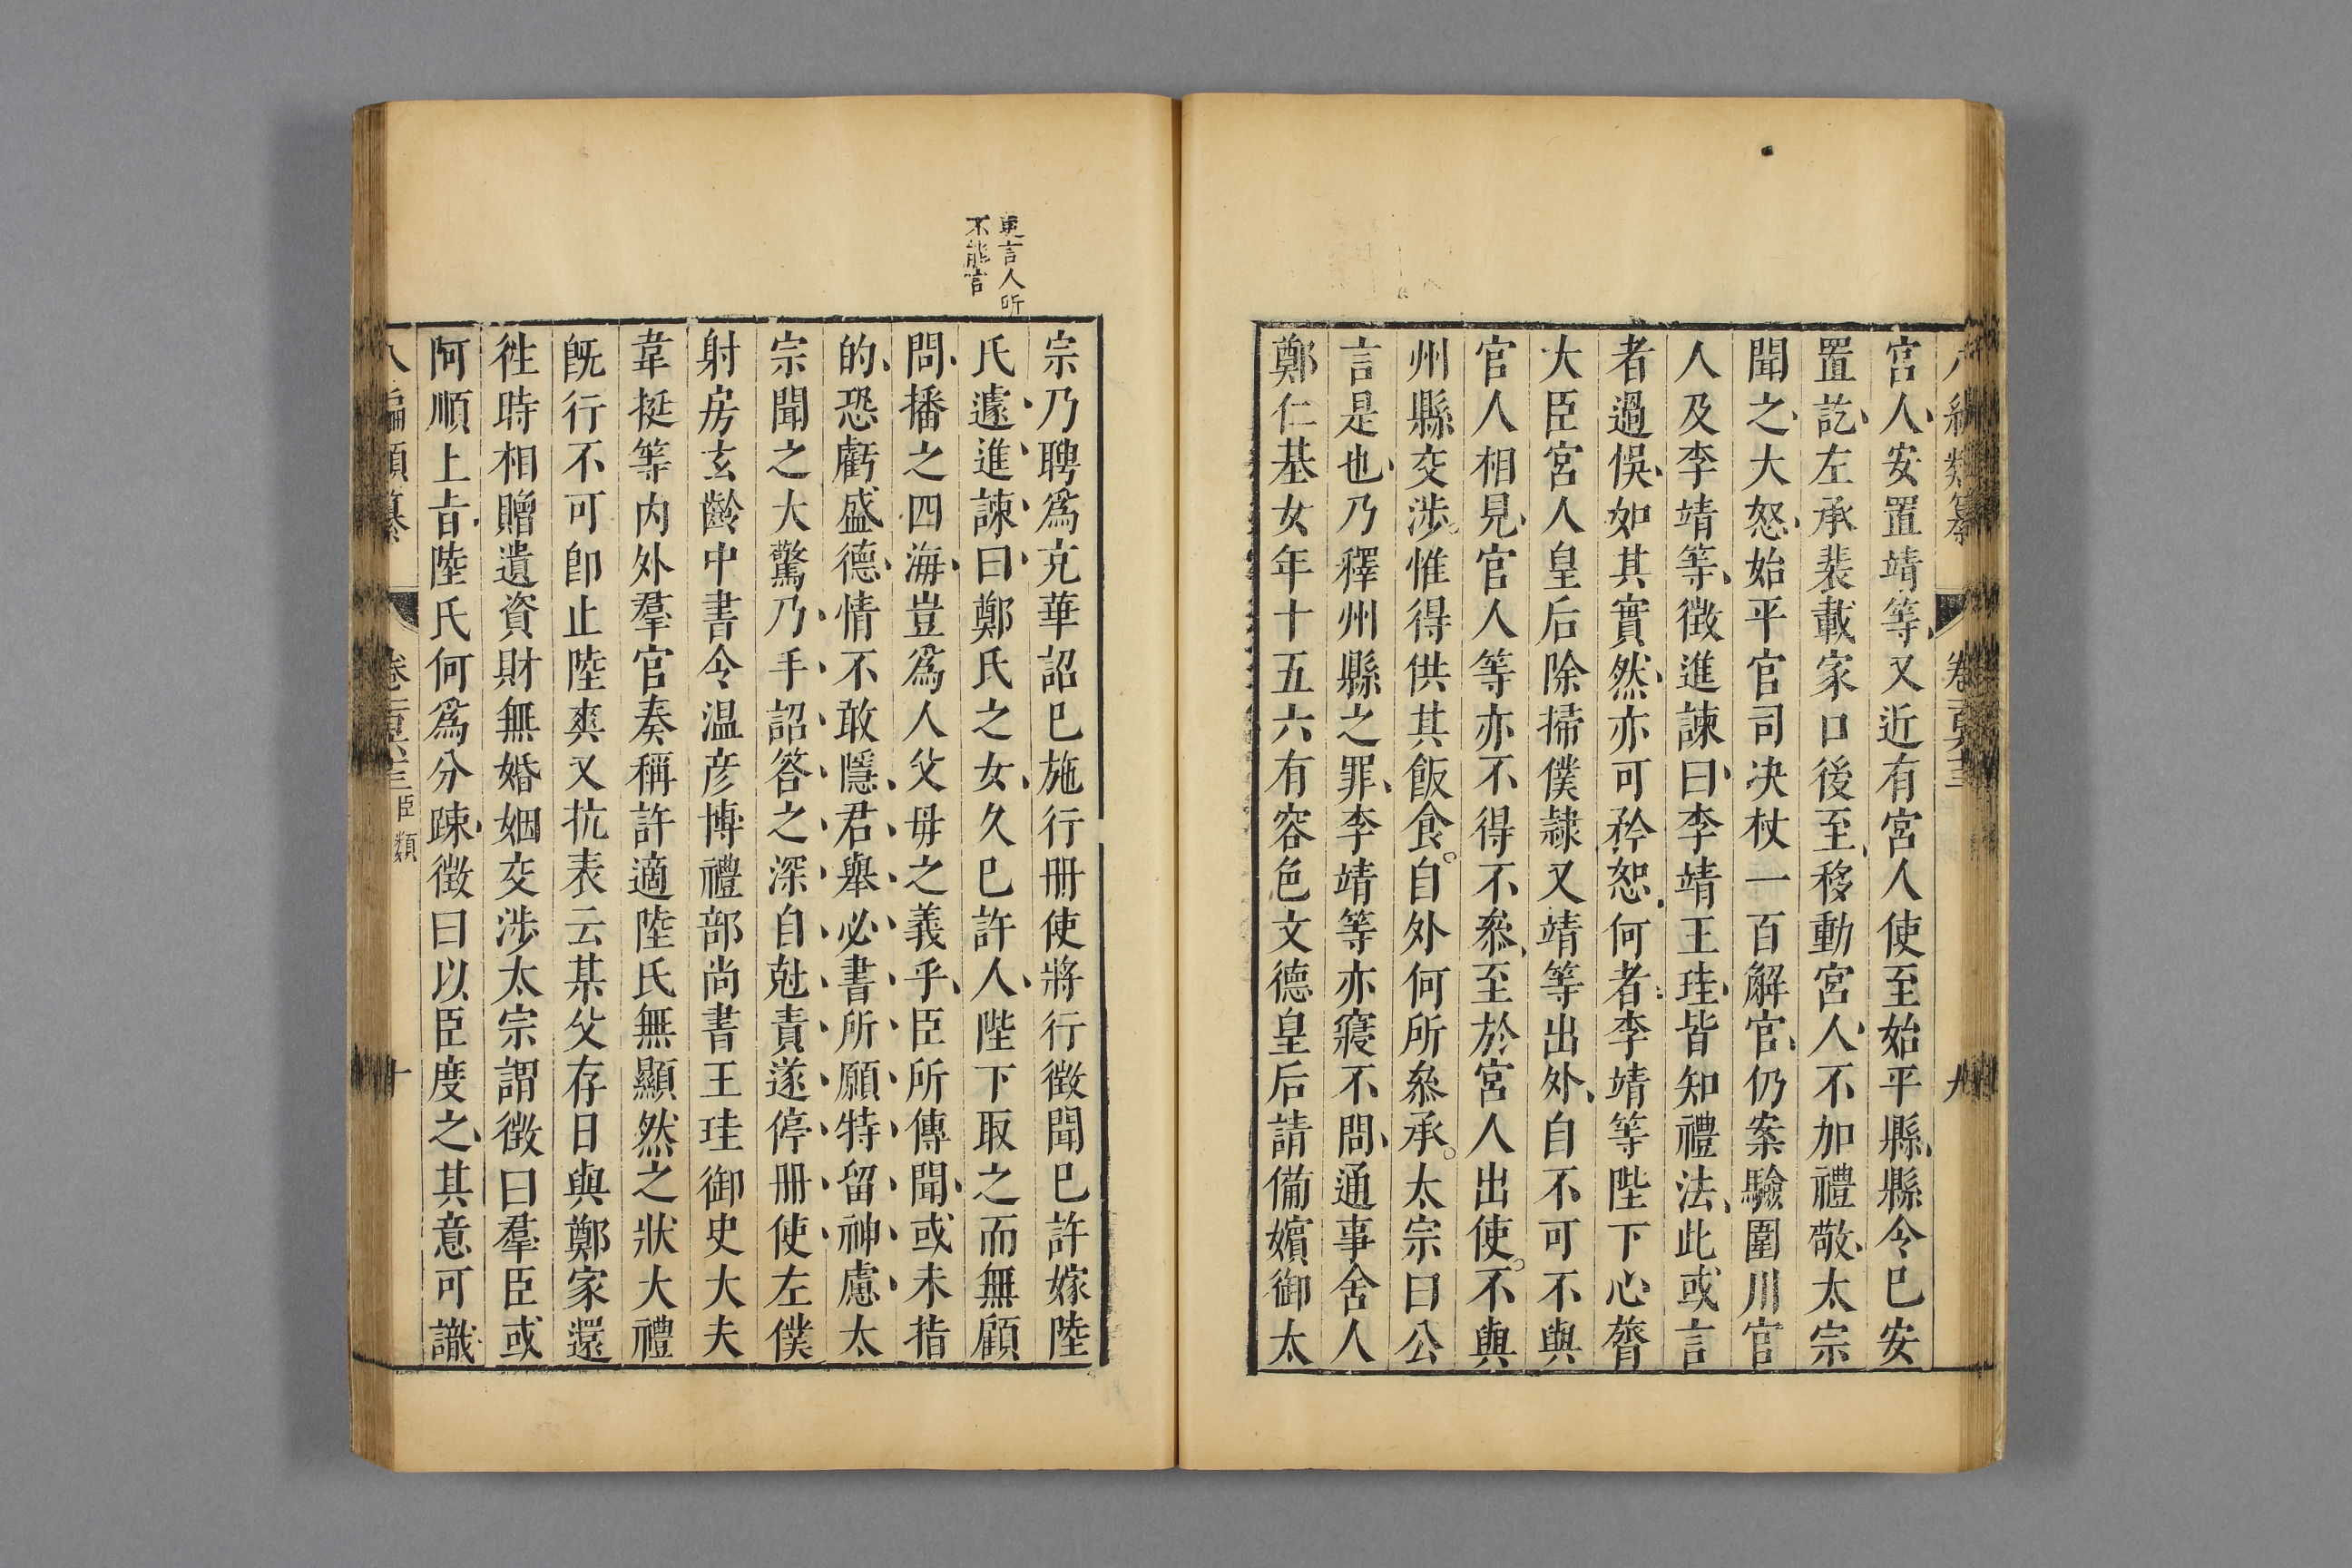 宮人安置靖等又近有宮人使至始平縣縣令已安
置訖左承裴載家口後至移動宮人不加禮敬太宗
聞之大怒始平官司决杖一百解官仍案驗圍川官
人及李靖等徵進諫曰李靖王珪皆知禮法此或言
者過悞如其實然亦可矜恕何者李靖等陛下心膂
大臣宮人皇后除掃僕隷又靖等出外自不可不與
官人相見官人等亦不得不叅至於宮人出使不與
州縣交涉惟得供其飯食自外何所叅承太宗曰公
言是也乃釋州縣之罪李靖等亦寢不問通事舍人
鄭仁基女年十五六有容色文德皇后請備嬪御太
更言人所
不能言
宗乃聘爲充華詔巳施行冊使將行徵聞巳許嫁陸
氏遽進諫曰鄭氏之女久巳許人陛下取之而無顧
問播之四海豈爲人父母之義乎臣所傳聞或未指
的恐虧盛德情不敢隱君舉必書所願特留神慮太
宗聞之大驚乃手詔答之深自尅責遂停冊使左僕
射房玄齡中書令温彦博禮部尚書王珪御史大夫
韋挺等内外羣官奏稱許適陸氏無顯然之狀大禮
旣行不可卽止陸爽又抗表云某父存日與鄭家還
徃時相贈遺資財無婚姻交涉太宗謂徵曰羣臣或
阿順上㫖陸氏何爲分踈徵曰以臣度之其意可識
八編類纂 臣類 十